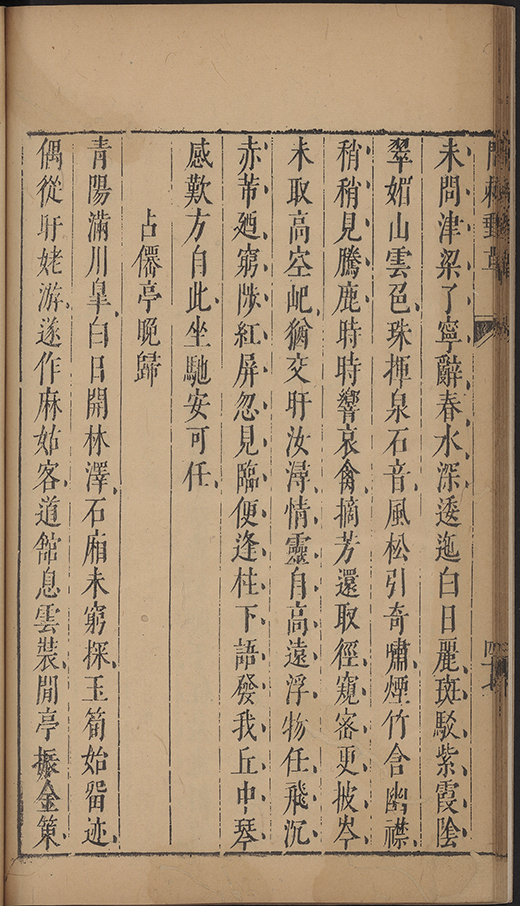 問棘郵草
未問津梁了寧辭春水深逶迤白日麗斑駁紫霞陰
翠媚山雲色珠揮泉石音風松引奇嘯煙竹含幽襟
稍稍見騰鹿時時響哀禽摘芳還取徑窺密更披岑
未取高空屺猶交旴汝潯情靈自高遠浮物任飛沉
赤芾廻窮陟紅屏忽見臨便逢柱下語發我丘中琴
感歎方自此坐馳安可任
占僊亭晚歸
青陽滿川臯白日開林澤石廂未窮探玉笥始畱迹
偶從旴姥游遂作麻姑客道舘息雲裝閒亭振金策